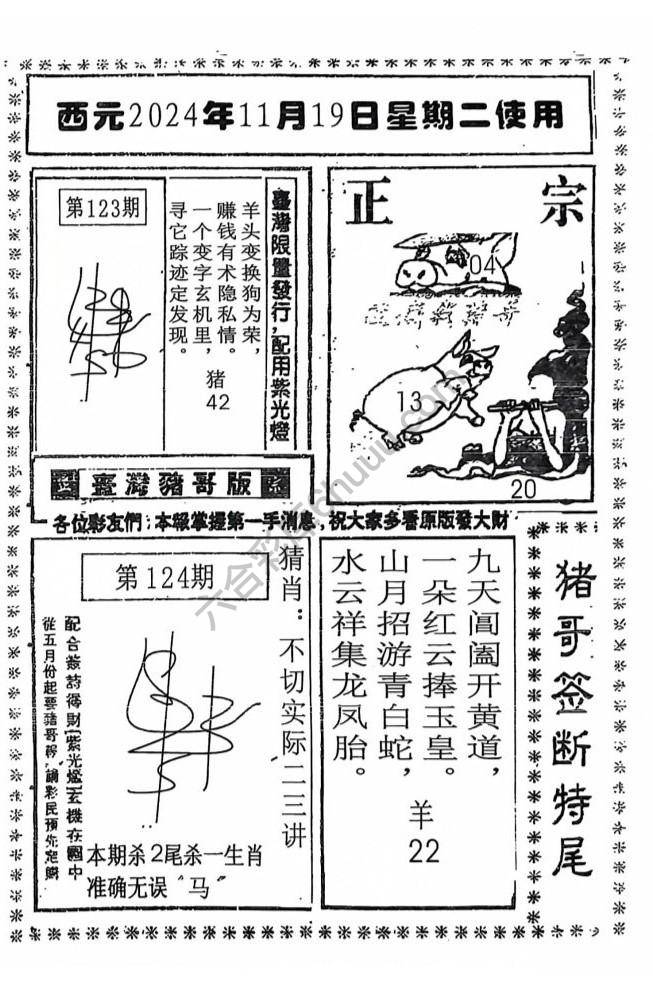 西元2024年11月19日星期二使用
第123期
羊头变换狗为荣,
赚钱有术隐私情。
一个变字玄机里,
寻它踪迹定发现。
猪
42
臺灣限量發行,配用紫光燈
正宗
04
13
20
臺灣豬哥版
各位彩友們:本報掌握第一手消息,祝大家多看原版發大財
第124期
猜肖:不切实际二三讲
配合簽詩得財(紫光燈)玄機在圖中
從五月份起要豬哥報,請彩民預先定購
本期杀2尾杀一生肖
准确无误“马”
九天阊阖开黄道,
一朵红云捧玉皇。
山月招游青白蛇,
水云祥集龙凤胎。
羊
22
猪哥签断特尾
六合彩库6huuu.com